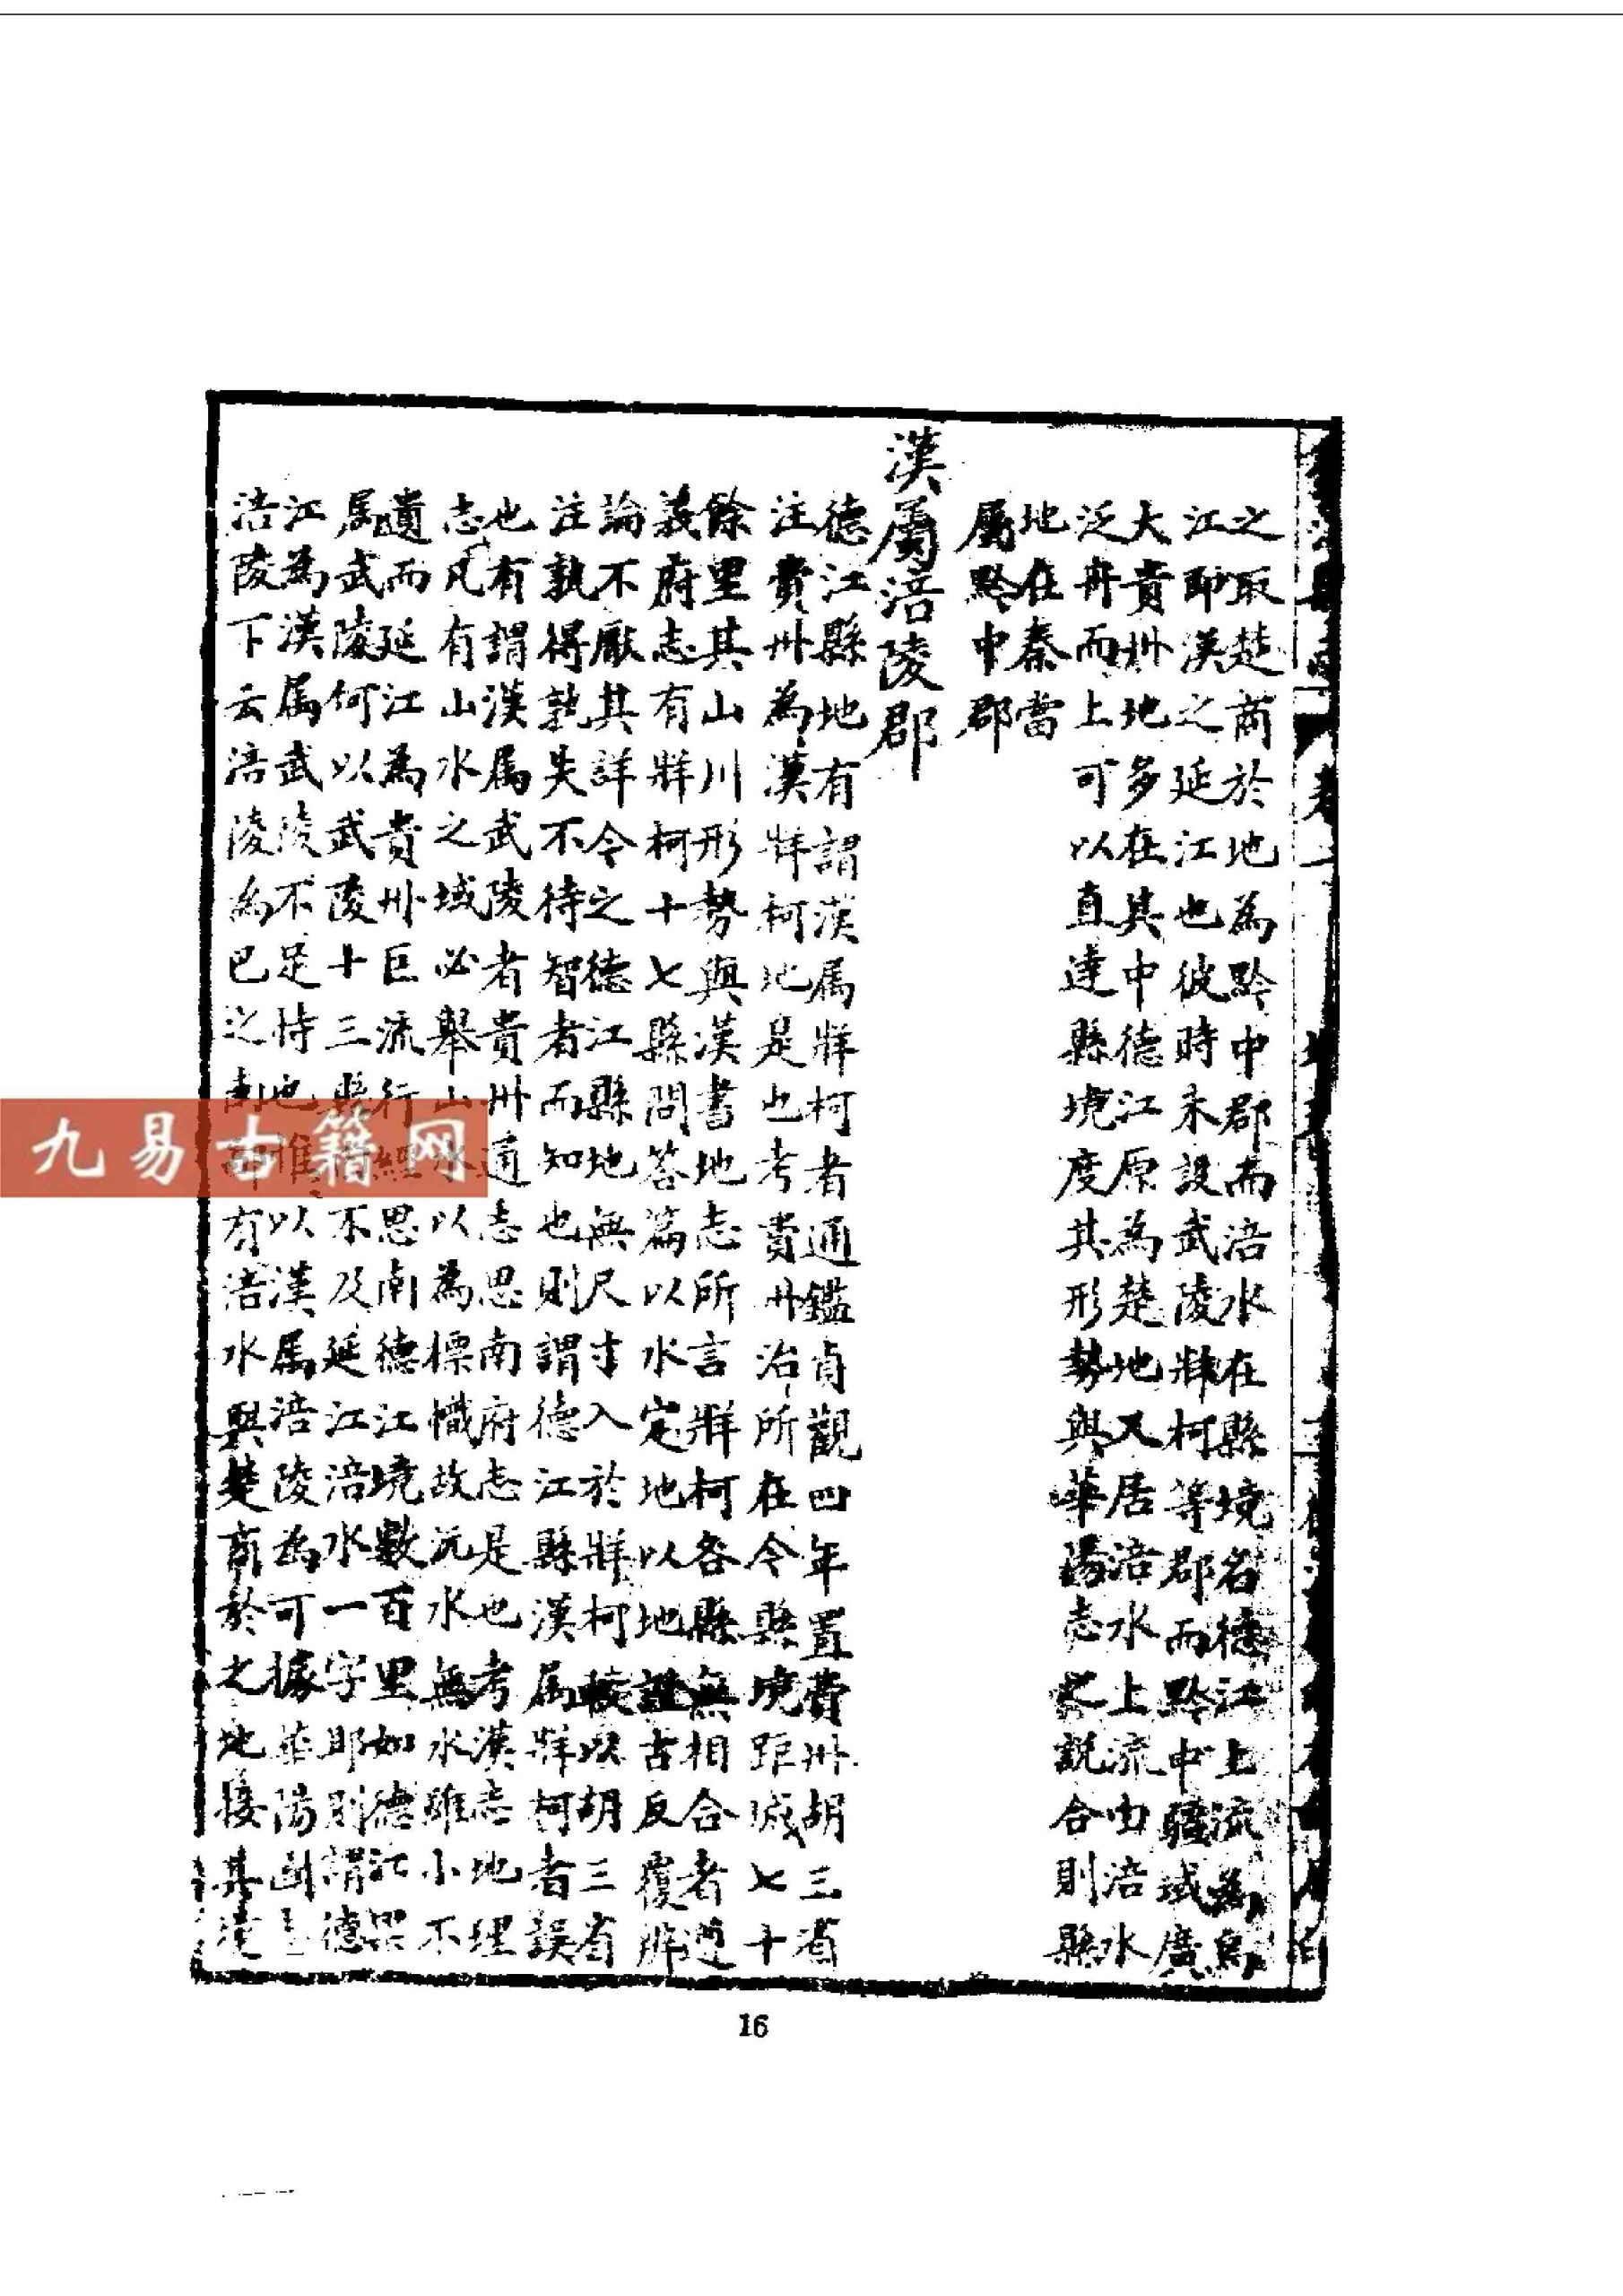 之取楚商於地為黔中郡而涪水在縣境名德江上流為烏
江即漢之延江也彼時未設武陵牂柯等郡而黔中疆域廣
大貴州地多在其中德江原為楚地又居涪水上流由涪水
泛舟而上可以直達縣境度其形勢與華陽志之說合則縣
地在秦當
屬黔中郡
漢屬涪陵郡
德江縣地有謂漢属牂柯者通鑑貞觀四年置費州胡三省
注費州為漢牂柯地是也考費州治所在今縣境距城七十
餘里其山川形勢與漢書地志所言牂柯各縣無相合者遵
義府志有牂柯十七縣問答篇以水定地以地證古反覆辨
論不厭其詳今之德江縣地無尺寸入於牂柯較以胡三省
注孰得孰失不待智者而知也則謂德江縣漢属牂柯者誤
也有謂漢属武陵者貴州通志思南府志是也考漢志地理
志凡有山水之域必舉山水以為標幟故沅水無水雖小不
遺而延江為貴州巨流行經思南德江境數百里如德江果
属武陵何以武陵十三縣不及延江涪水一字耶則謂德
江為漢属武陵不足恃也惟以漢属涪陵為可據華陽國志
涪陵下云涪陵為巴之南鄙有涪水與楚商於之地接其境
16
九易古籍网